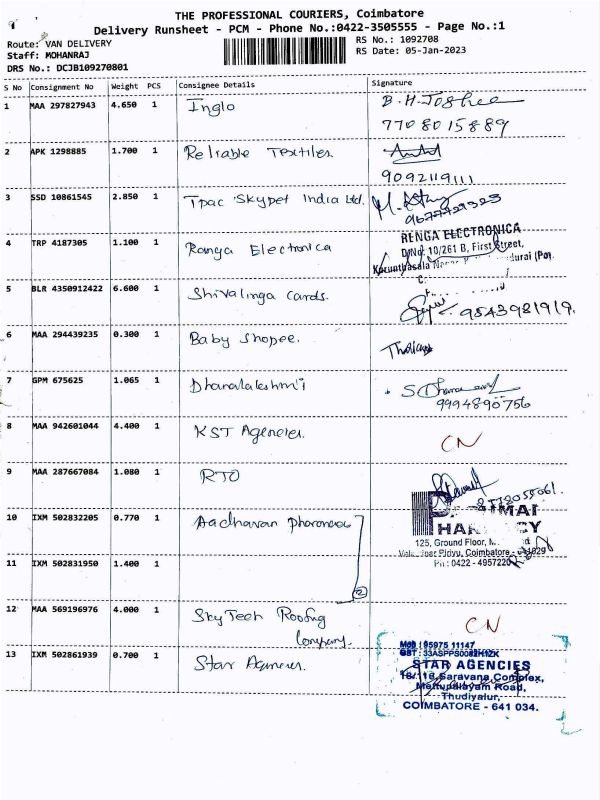 THE PROFESSIONAL COURIERS, Coimbatore
Delivery Runsheet - PCM - Phone No.:0422-3505555 - Page No.:1
Route: VAN DELIVERY
RS No.: 1092708
Staff: MOHANRAJ
RS Date: 05-Jan-2023
DRS No.: DCJB109270801
S No Consignment No Weight PCS Consignee Details Signature
1 MAA 297827943 4.650 1 Inglo B.H.Joshee
7708015889
2 APK 1298885 1.700 1 Reliable Textiles
9092119111
3 SSD 10861545 2.850 1 Tpac Skypet India Ltd.
4 TRP 4187305 1.100 1 Ranga Electronica RENGA ELECTRONICA
D.No: 10/261 B, First Street,
5 BLR 4350912422 6.600 1 Shivalinga cards. 9543981919.
6 MAA 294439235 0.300 1 Baby Shopee.
7 GPM 675625 1.065 1 Dhanalakshmi
9994890756
8 MAA 942601044 4.400 1 KST Agencies. CN
9 MAA 287667084 1.080 1 RTO
10 IXM 502832205 0.770 1 Aadhavan
125, Ground Floor,
Coimbatore
11 IXM 502831950 1.400 1 2 Ph : 0422 - 4957220
12 MAA 569196976 4.000 1 Sky Tech Roofing CN
Company.
13 IXM 502861939 0.700 1 Star Agencies. Mob : 95975 11147
STAR AGENCIES
Saravana Complex,
Mettupalayam Road,
Thudiyalur,
COIMBATORE - 641 034.